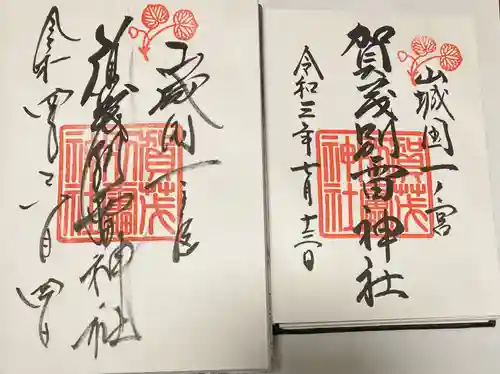 山城国一ノ宮
賀茂別雷神社
令和三年十月十三日
賀茂別雷神社
山城国一之宮
賀茂別雷神社
令和四年 月四日
賀茂別雷神社